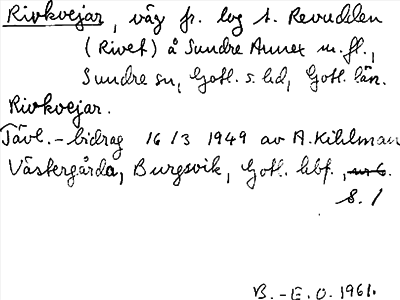 Rivkvejar, väg fr. lvg t. Revudden
(Rivet) å Sundre Annex m. fl.,
Sundre sn, Gotl. s. hd, Gotl. län.
Rivkvejar.
Tävl. - bidrag 16/3 1949 av A. Kihlman
Västergårda, Burgsvik, Gotl. hbf.,
s. 1
B. - E. O. 1961.